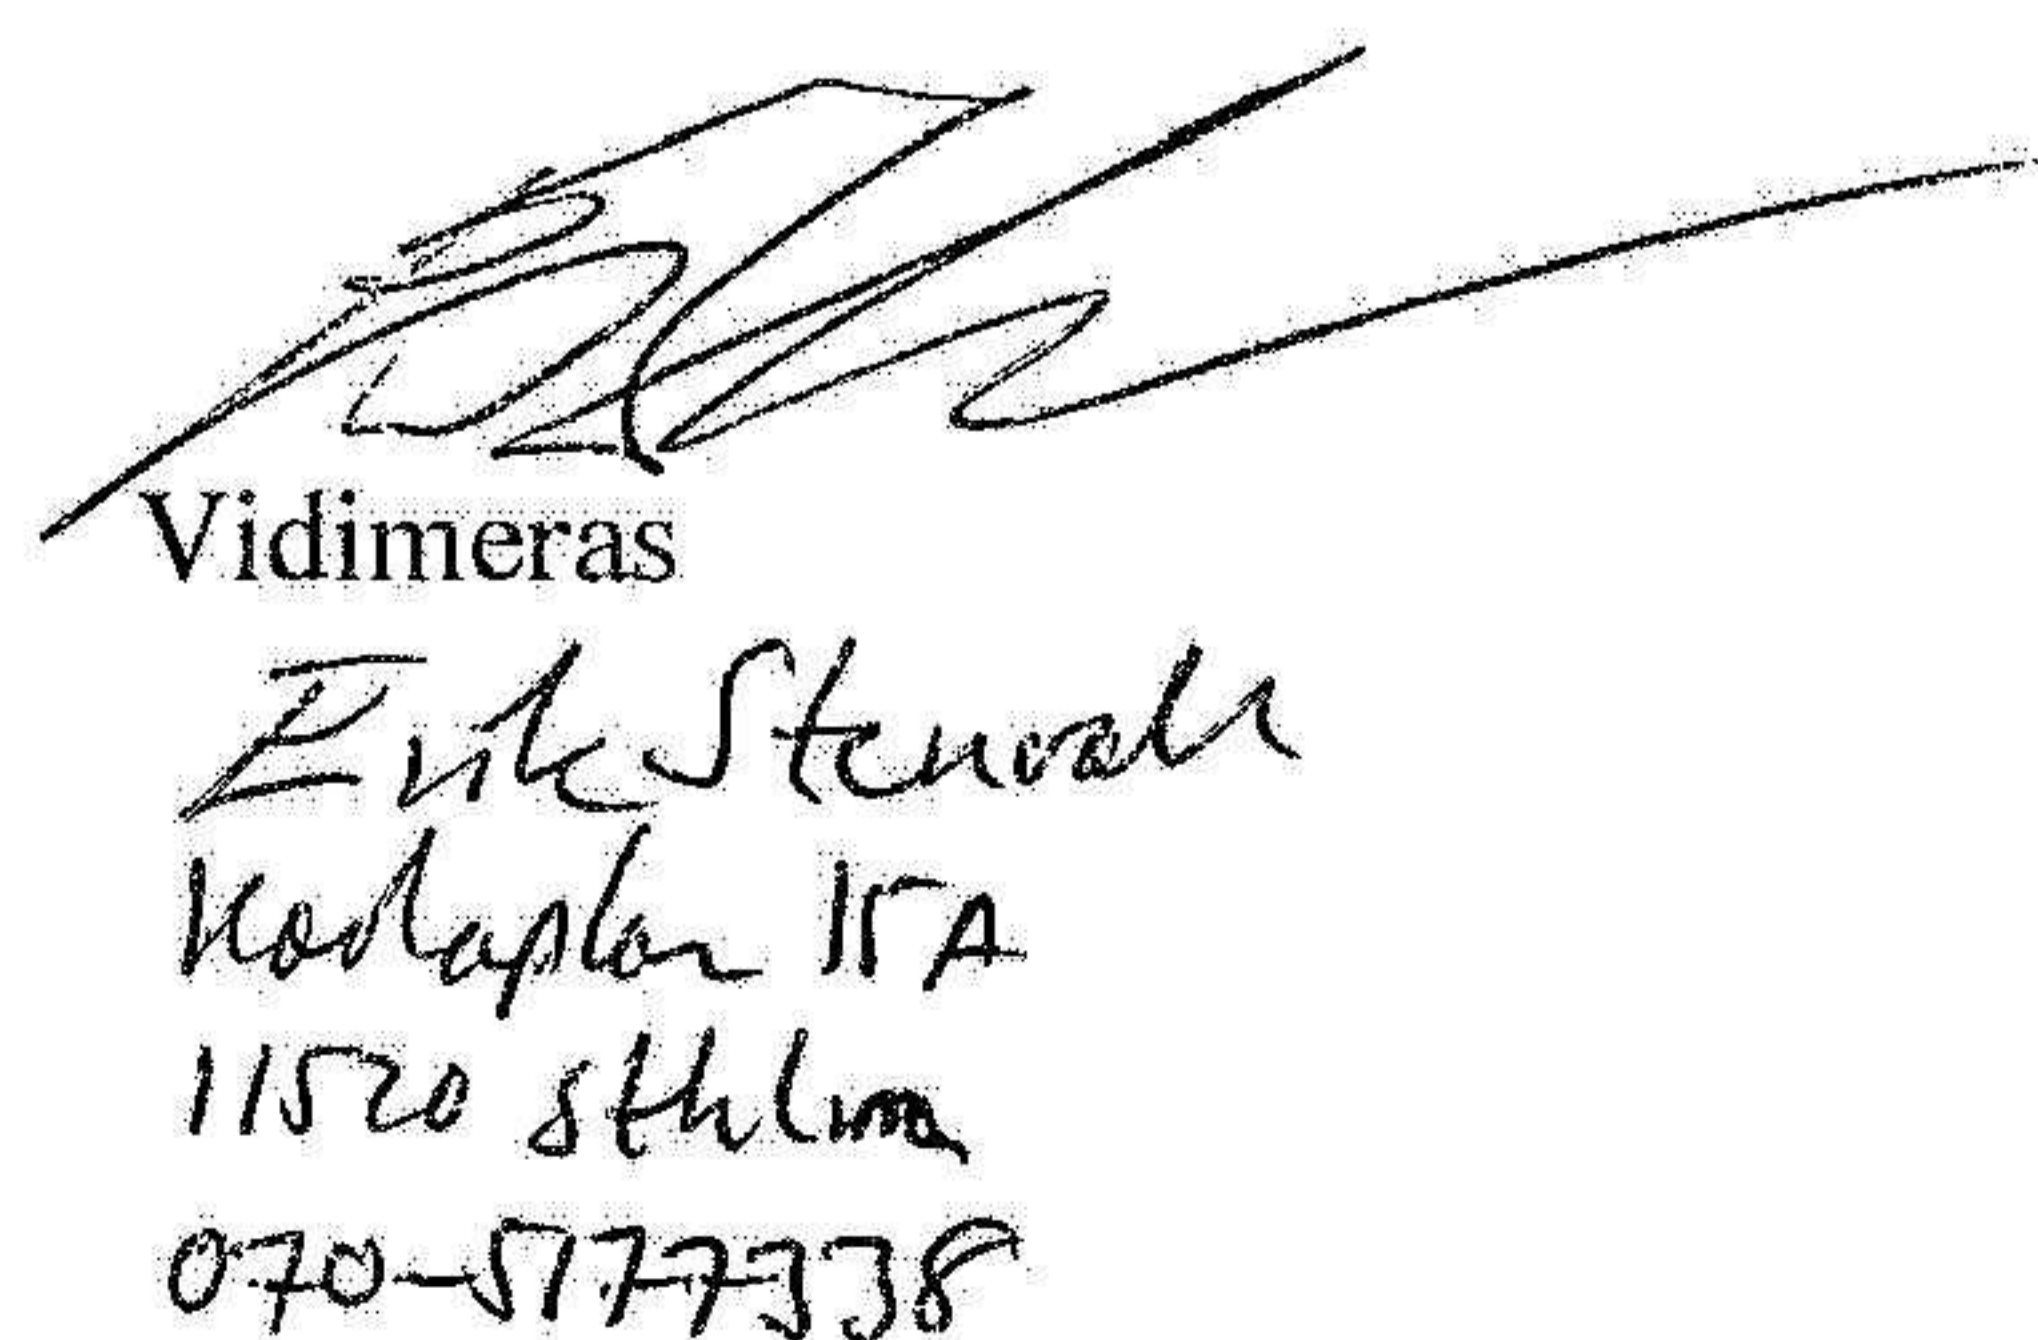 Vidimeras
Erik Stenvall
15A
11520 Sthlm
070-5177338